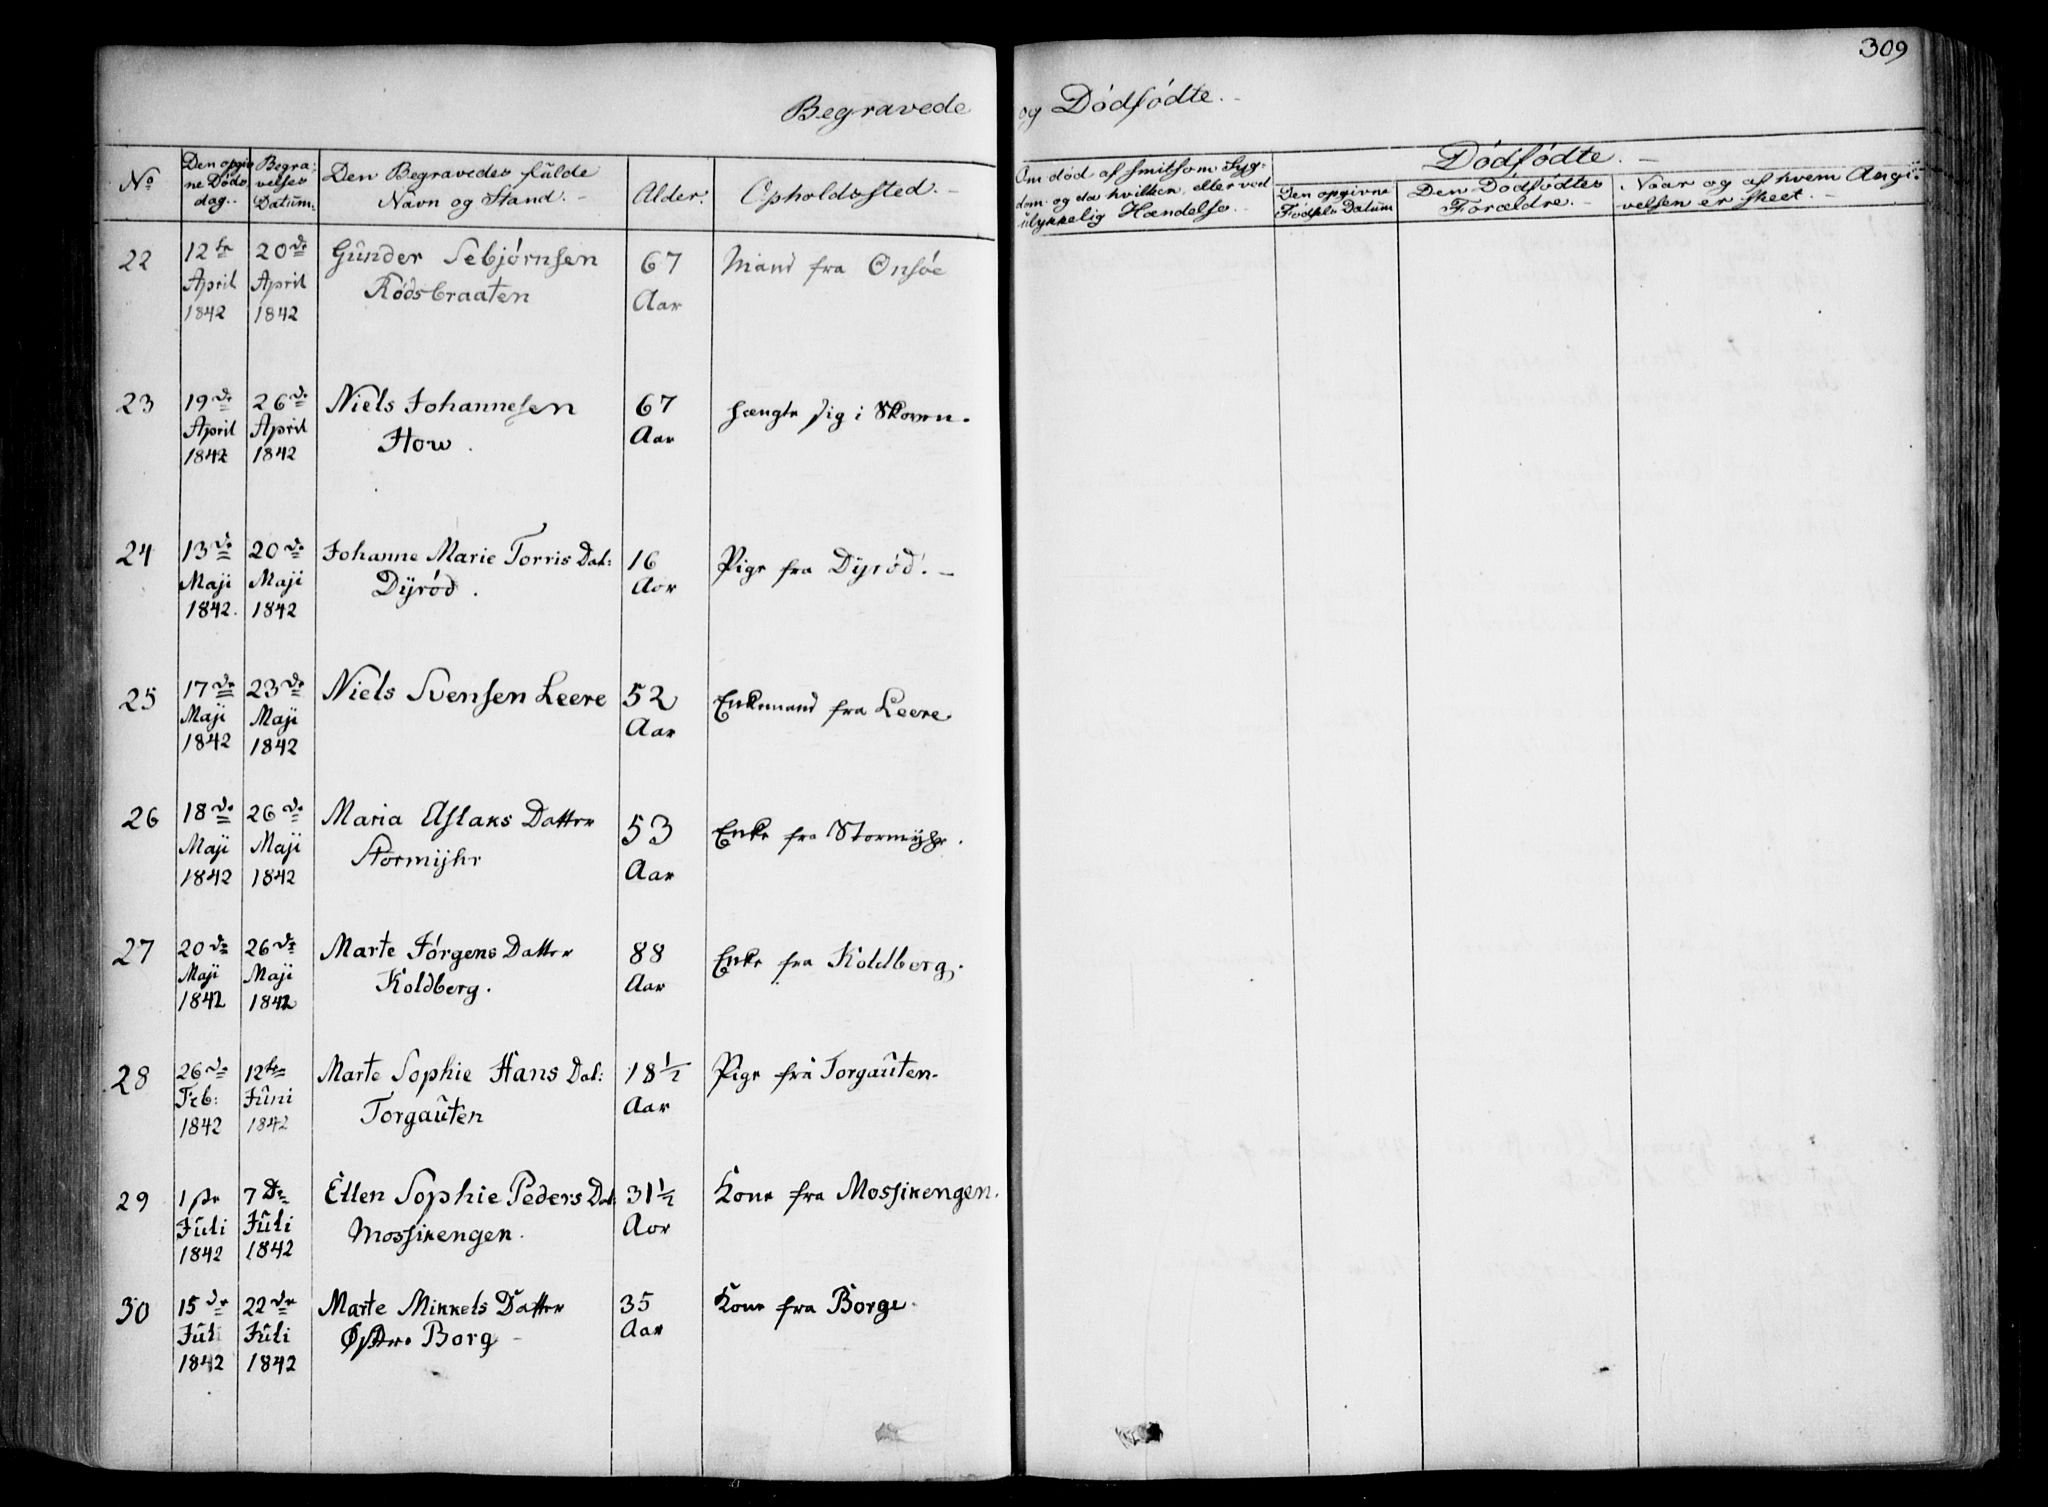 309
Begravede og Dødfødte.
No
Den opgivne Døds dag.
Begravelses Datum.
Den Begravedes fulde Navn og Stand.
Alder.
Opholdssted.
Om død af smitsom Sygdom og da hvilken, eller ved ulykkelig Hændelse.
Dødfødte.
Den opgivne Fødsels Datum
Den Dødfødtes Forældre.
Naar og af hvem Angivelsen er skeet.
22 12te 20de Gunder Sebjørnsen 67 Mand fra Onsøe
April April Rødsbraaten Aar
1842 1842
23 19de 26de Niels Johannesen 67 hængte sig i Skoven.
April April How. Aar
1842 1842
24 13de 20de Johanne Marie Torris Dat: 16 Pige fra Dyrød.
Maji Maji Dyrød. Aar
1842. 1842
25 17de 23de Niels Svensen Leere 52 Enkemand fra Leere.
Maji Maji Aar
1842 1842
26 18de 26de Maria Aslaks Datter 53 Enke fra Stormyhr.
Maji Maji Stormyhr Aar
1842 1842
27 20de 26de Marte Jørgens Datter 88 Enke fra Koldberg.
Maji Maji Koldberg. Aar
1842 1842
28 26de 12te Marte Sophie Hans Dat: 18 1/2 Pige fra Torgauten.
Feb: Juni Torgauten Aar
1842 1842
29 1ste 7de Ellen Sophie Peders Dat: 31 1/2 Kone fra Mossikengen.
Juli Juli Mossikengen. Aar
1842 1842
30 15de 22de Marte Mikkels Datter 35 Kone fra Borge.
Juli Juli Østre Borg Aar
1842 1842